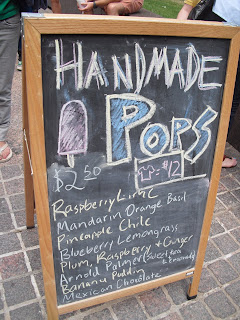 HANDMADE
POPS
$2.50
= $12
Raspberry Lime
Mandarin Orange Basil
Pineapple Chile
Blueberry Lemongrass
Plum, Raspberry + Ginger
Arnold Palmer (Sweet tea & Lemonade)
Banana Pudding
Mexican Chocolate